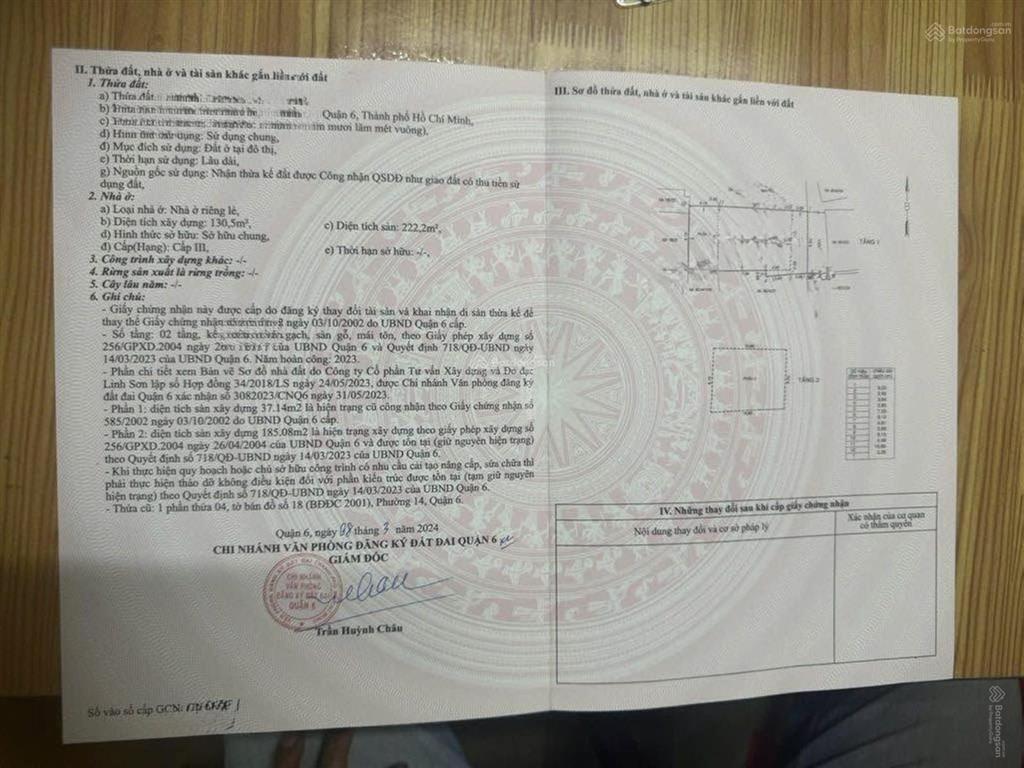 Batdongsan
by PropertyGuru
II. Thửa đất, nhà ở và tài sản khác gắn liền với đất
1. Thửa đất:
a) Thửa đất
b) Quận 6, Thành phố Hồ Chí Minh,
c) mươi lăm mét vuông),
d) Hình thức sử dụng: Sử dụng chung,
đ) Mục đích sử dụng: Đất ở tại đô thị,
e) Thời hạn sử dụng: Lâu dài,
g) Nguồn gốc sử dụng: Nhận thừa kế đất được Công nhận QSDĐ như giao đất có thu tiền sử
dụng đất,
2. Nhà ở:
a) Loại nhà ở: Nhà ở riêng lẻ,
b) Diện tích xây dựng: 130,5m², c) Diện tích sàn: 222,2m²,
d) Hình thức sở hữu: Sở hữu chung,
đ) Cấp(Hạng): Cấp III, e) Thời hạn sở hữu: -/-,
3. Công trình xây dựng khác: -/-
4. Rừng sản xuất là rừng trồng: -/-
5. Cây lâu năm: -/-
6. Ghi chú:
- Giấy chứng nhận này được cấp do đăng ký thay đổi tài sản và khai nhận di sản thừa kế để
thay thế Giấy chứng nhận ngày 03/10/2002 do UBND Quận 6 cấp.
- Số tầng: 02 tầng, kết gạch, sàn gỗ, mái tôn, theo Giấy phép xây dựng số
256/GPXD.2004 ngày của UBND Quận 6 và Quyết định 718/QĐ-UBND ngày
14/03/2023 của UBND Quận 6. Năm hoàn công: 2023.
- Phần chi tiết xem Bản vẽ Sơ đồ nhà đất do Công ty Cổ phần Tư vấn Xây dựng và Đo đạc
Linh Sơn lập số Hợp đồng 34/2018/LS ngày 24/05/2023, được Chi nhánh Văn phòng đăng ký
đất đai Quận 6 xác nhận số 3082023/CNQ6 ngày 31/05/2023.
- Phần 1: diện tích sàn xây dựng 37.14m2 là hiện trạng cũ công nhận theo Giấy chứng nhận số
585/2002 ngày 03/10/2002 do UBND Quận 6 cấp.
- Phần 2: diện tích sàn xây dựng 185.08m2 là hiện trạng xây dựng theo giấy phép xây dựng số
256/GPXD.2004 ngày 26/04/2004 của UBND Quận 6 và được tồn tại (giữ nguyên hiện trạng)
theo Quyết định số 718/QĐ-UBND ngày 14/03/2023 của UBND Quận 6.
- Khi thực hiện quy hoạch hoặc chủ sở hữu công trình có nhu cầu cải tạo nâng cấp, sửa chữa thì
phải thực hiện tháo dỡ không điều kiện đối với phần kiến trúc được tồn tại (tạm giữ nguyên
hiện trạng) theo Quyết định số 718/QĐ-UBND ngày 14/03/2023 của UBND Quận 6.
- Thửa cũ: 1 phần thửa 04, tờ bản đồ số 18 (BĐĐC 2001), Phường 14, Quận 6.
Quận 6, ngày 08 tháng 3 năm 2024
CHI NHÁNH VĂN PHÒNG ĐĂNG KÝ ĐẤT ĐAI QUẬN 6
GIÁM ĐỐC
CHI NHÁNH
VĂN PHÒNG
ĐĂNG KÝ ĐẤT ĐAI
QUẬN 6
Trần Huỳnh Châu
Số vào sổ cấp GCN:
III. Sơ đồ thửa đất, nhà ở và tài sản khác gắn liền với đất
TẦNG 1
TẦNG 2
IV. Những thay đổi sau khi cấp giấy chứng nhận
Nội dung thay đổi và cơ sở pháp lý
Xác nhận của cơ quan
có thẩm quyền
Batdongsan
by PropertyGuru